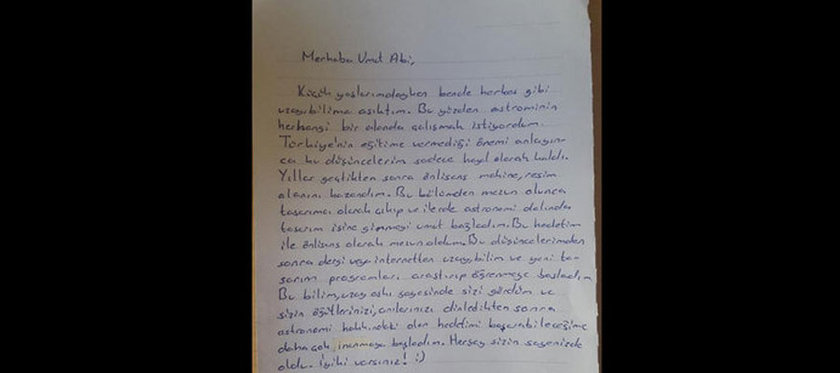 Merhaba Umut Abi,
Küçük yaşlarımdayken bende herkes gibi
uzaybilime aşıktım. Bu yüzden astrominin
herhangi bir alanda çalışmak istiyordum.
Türkiye'nin eğitime vermediği önemi anlayın-
ca bu düşüncelerim sadece hayal olarak kaldı.
Yıllar geçtikten sonra önlisans makine, resim
alanını kazandım. Bu bölümden mezun olunca
tasarımcı olarak çıkıp ve ilerde astronomi dalında
tasarım işine girmeyi umut bağladım. Bu hedefim
ile önlisans olarak mezun oldum. Bu düşüncelerimden
sonra dergi veya internetten uzaybilim ve yeni ta-
sarım programları araştırıp öğrenmeye başladım
Bu bilim, uzay aşkı sayesinde sizi gördüm ve
sizin öğütlerinizi, anılarınızı dinledikten sonra
astronomi hakkındaki olan hedefimi başarabileceğime
daha çok inanmaya başladım. Herşey sizin sayenizde
oldu. İyiki varsınız! :)